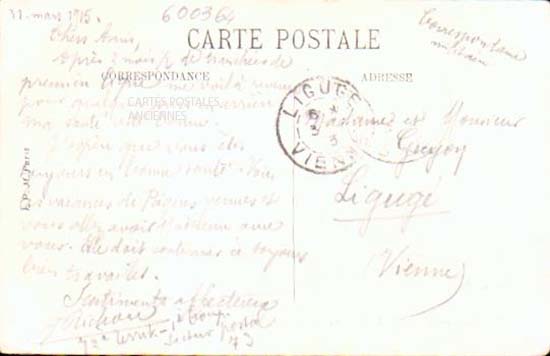 31 mars 1915.
600364
Chers Amis,
CARTE POSTALE
Correspondance
militaire
Après 2 mois ½ de tranchées de
CORRESPONDANCE
ADRESSE
première ligne me voilà revenu
pour quelques
CARTES POSTALES
ANCIENNES
ma santé est bonne.
J'espère que vous êtes
toujours en bonne santé. Voici
les vacances de Pâques venues et
vous allez avoir
vous. Elle doit continuer à toujours
bien travailler.
Sentiments affectueux
J Richard
72e Territ.
Secteur postal
73
LIGUGÉ
VIENNE
Madame et Monsieur
Guyon
Ligugé
(Vienne)
E.P. M. Paris